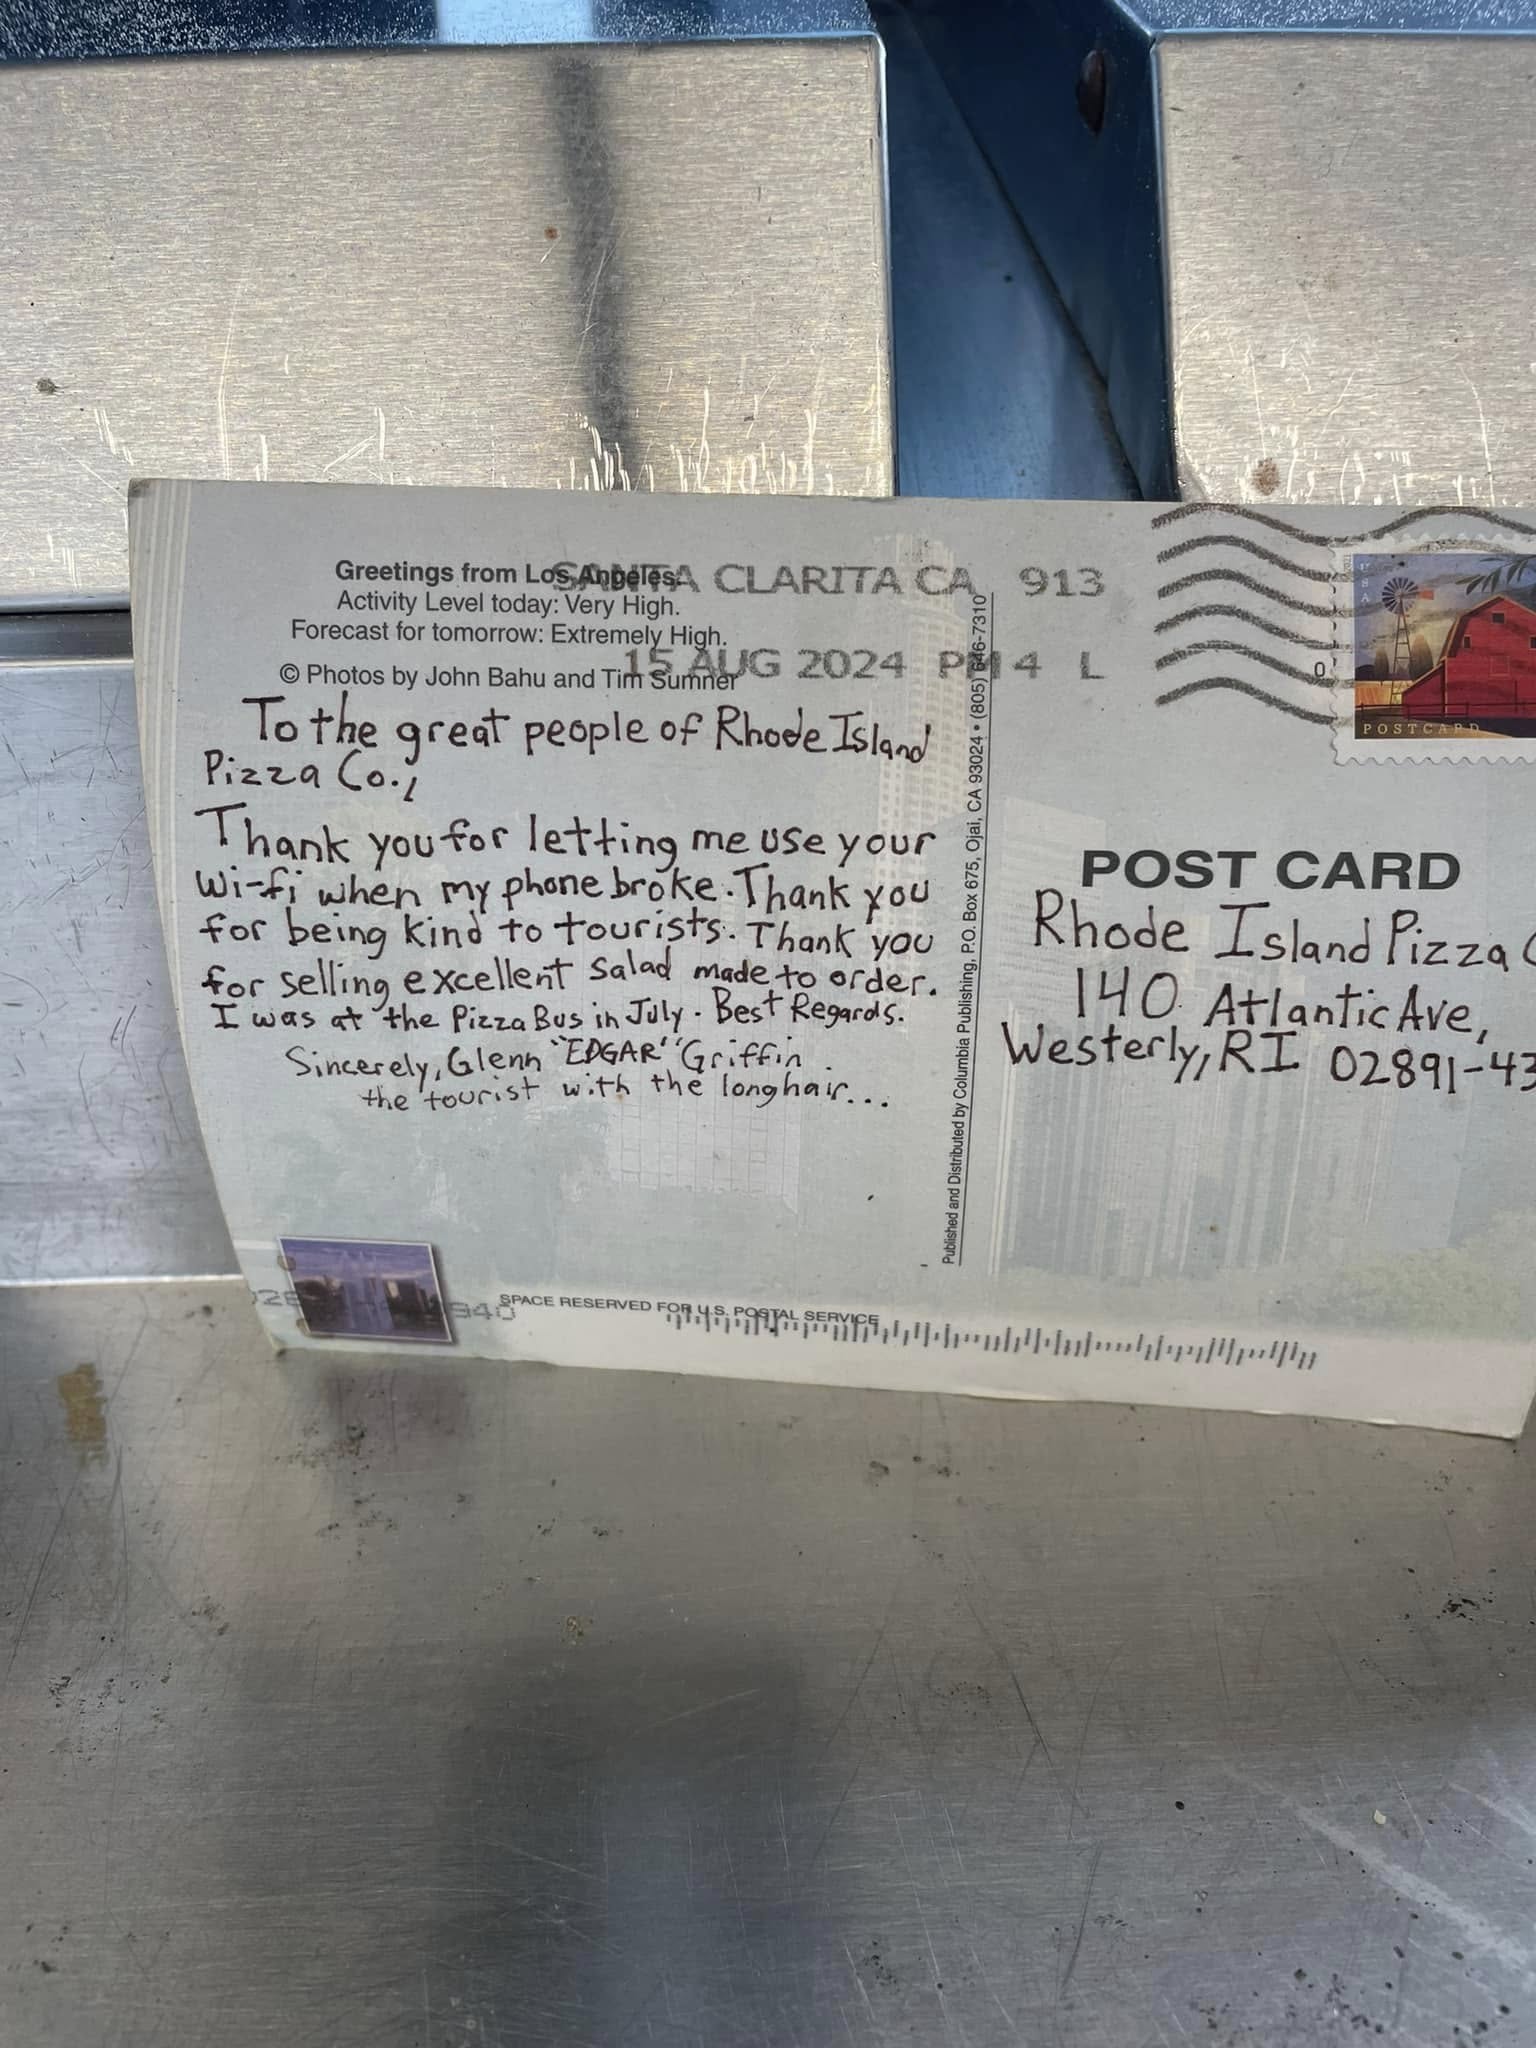 Greetings from Los Angeles:
SANTA CLARITA CA 913
Activity Level today: Very High.
Forecast for tomorrow: Extremely High.
15 AUG 2024 PM 4 L
© Photos by John Bahu and Tim Sumner
To the great people of Rhode Island
Pizza Co.,
Thank you for letting me use your
Wi-fi when my phone broke. Thank you
for being kind to tourists. Thank you
for selling excellent salad made to order.
I was at the Pizza Bus in July. Best Regards.
Sincerely, Glenn "EDGAR" Griffin
the tourist with the longhair...
Published and Distributed by Columbia Publishing, P.O. Box 675, Ojai, CA 93024 • (805) 646-7310
USA
0
POSTCARD
POST CARD
Rhode Island Pizza C
140 Atlantic Ave,
Westerly, RI 02891-43
SPACE RESERVED FOR U.S. POSTAL SERVICE